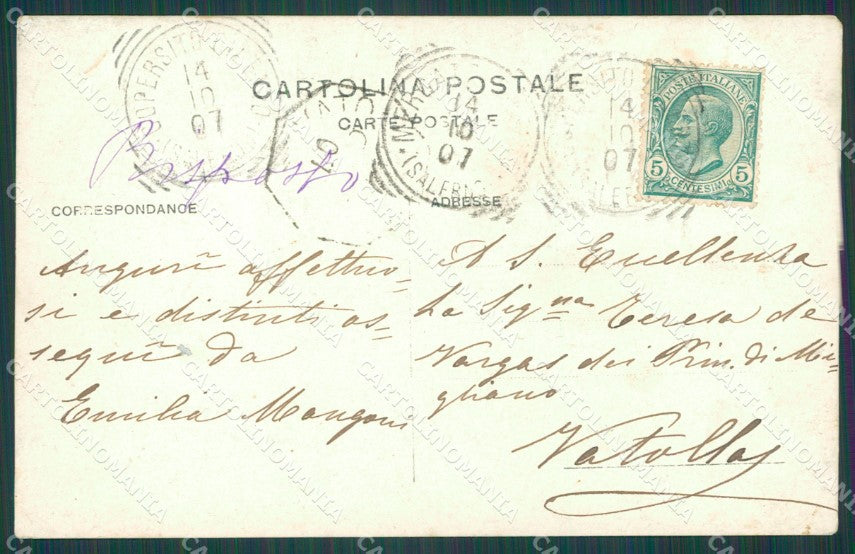 CARTOLINA POSTALE
CARTE POSTALE
14
10
07
14
10
07
(SALERNO
14
10
07
POSTE ITALIANE
5 5
CENTESIMI
Risposto
CORRESPONDANCE
ADRESSE
Augurii affettuo-
si e distinti os-
sequii da
Emilia Mangoni
A S. Eccellenza
La Sigⁿᵃ Teresa de
Vargas dei Prin. di Mi-
gliano
Vatolla
CARTOLINOMANIA